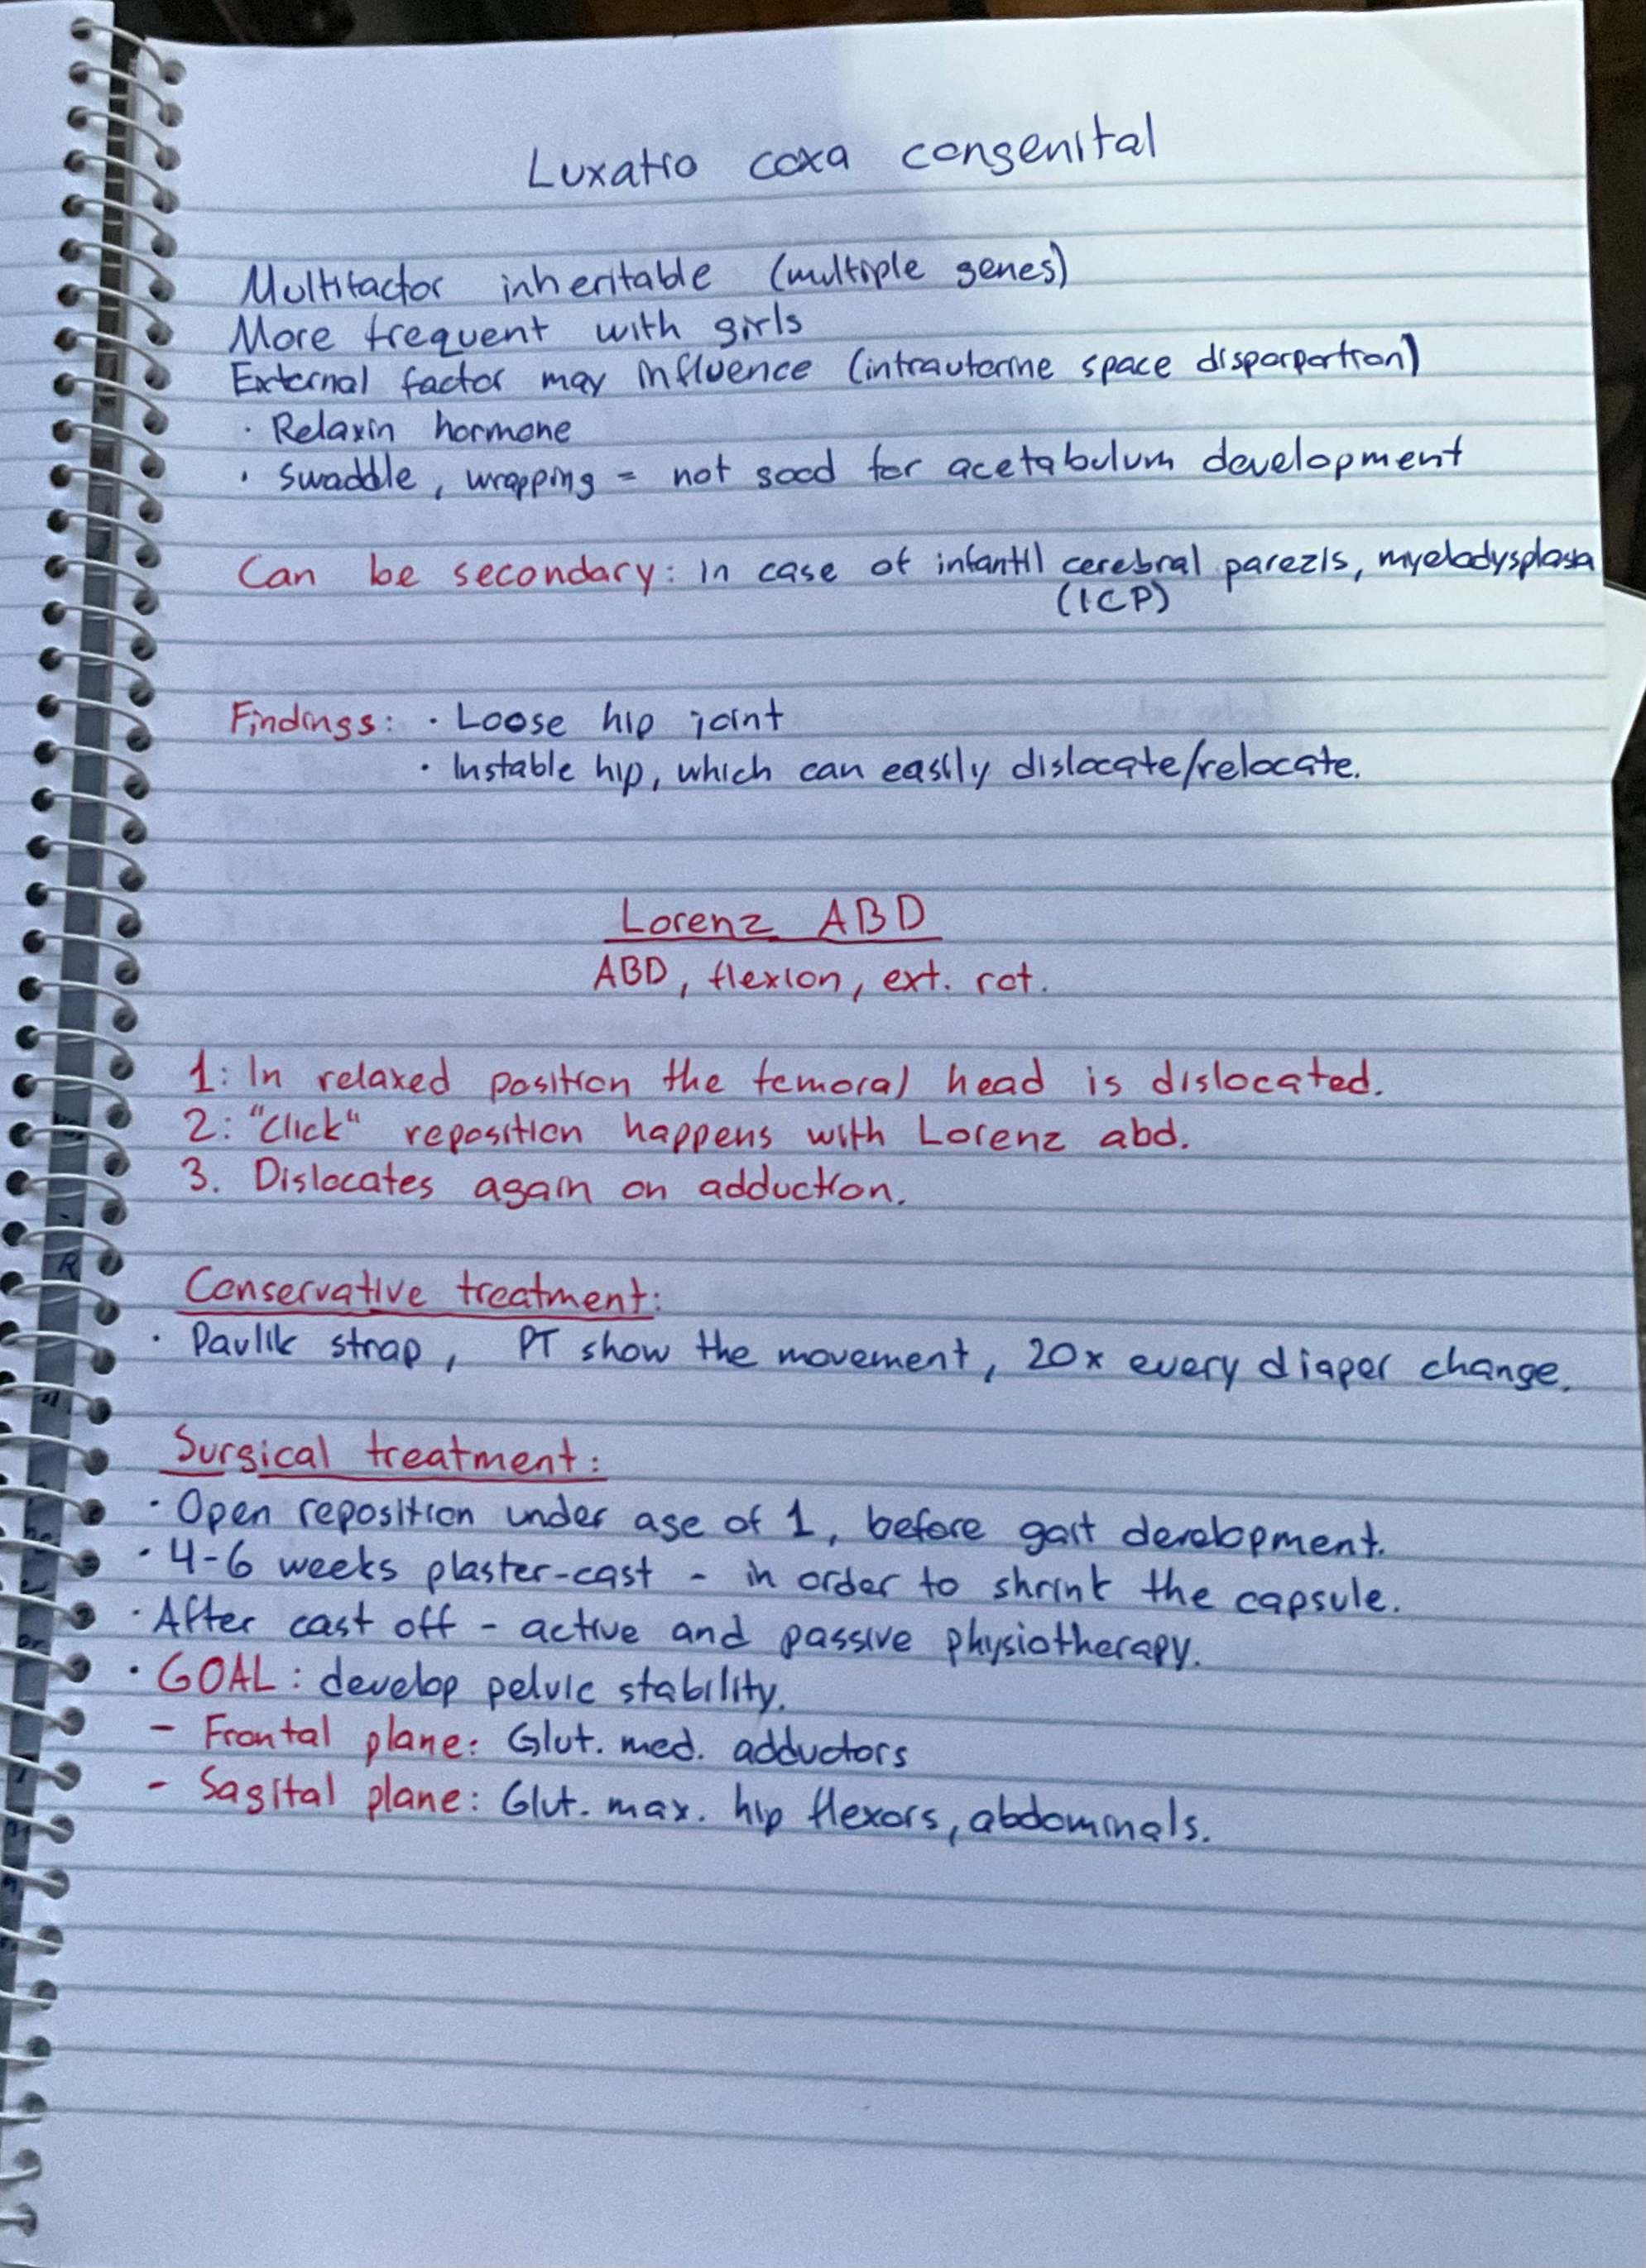 Luxatio coxa congenital
Multifactor inheritable (multiple genes)
More frequent with girls
External factor may influence (intrauterine space disparpartion)
· Relaxin hormone
· Swaddle, wrapping = not good for acetabulum development
Can be secondary: in case of infantil cerebral parezis, myelodysplasia
(ICP)
Findings: · Loose hip joint
· Instable hip, which can easily dislocate/relocate.
Lorenz ABD
ABD, flexion, ext. rot.
1: In relaxed position the femoral head is dislocated.
2: "Click" reposition happens with Lorenz abd.
3. Dislocates again on adduction.
Conservative treatment:
· Pavlik strap, PT show the movement, 20x every diaper change.
Surgical treatment:
· Open reposition under age of 1, before gait development.
· 4-6 weeks plaster-cast - in order to shrink the capsule.
· After cast off - active and passive physiotherapy.
· GOAL: develop pelvic stability.
- Frontal plane: Glut. med. adductors
- Sagital plane: Glut. max. hip flexors, abdominals.